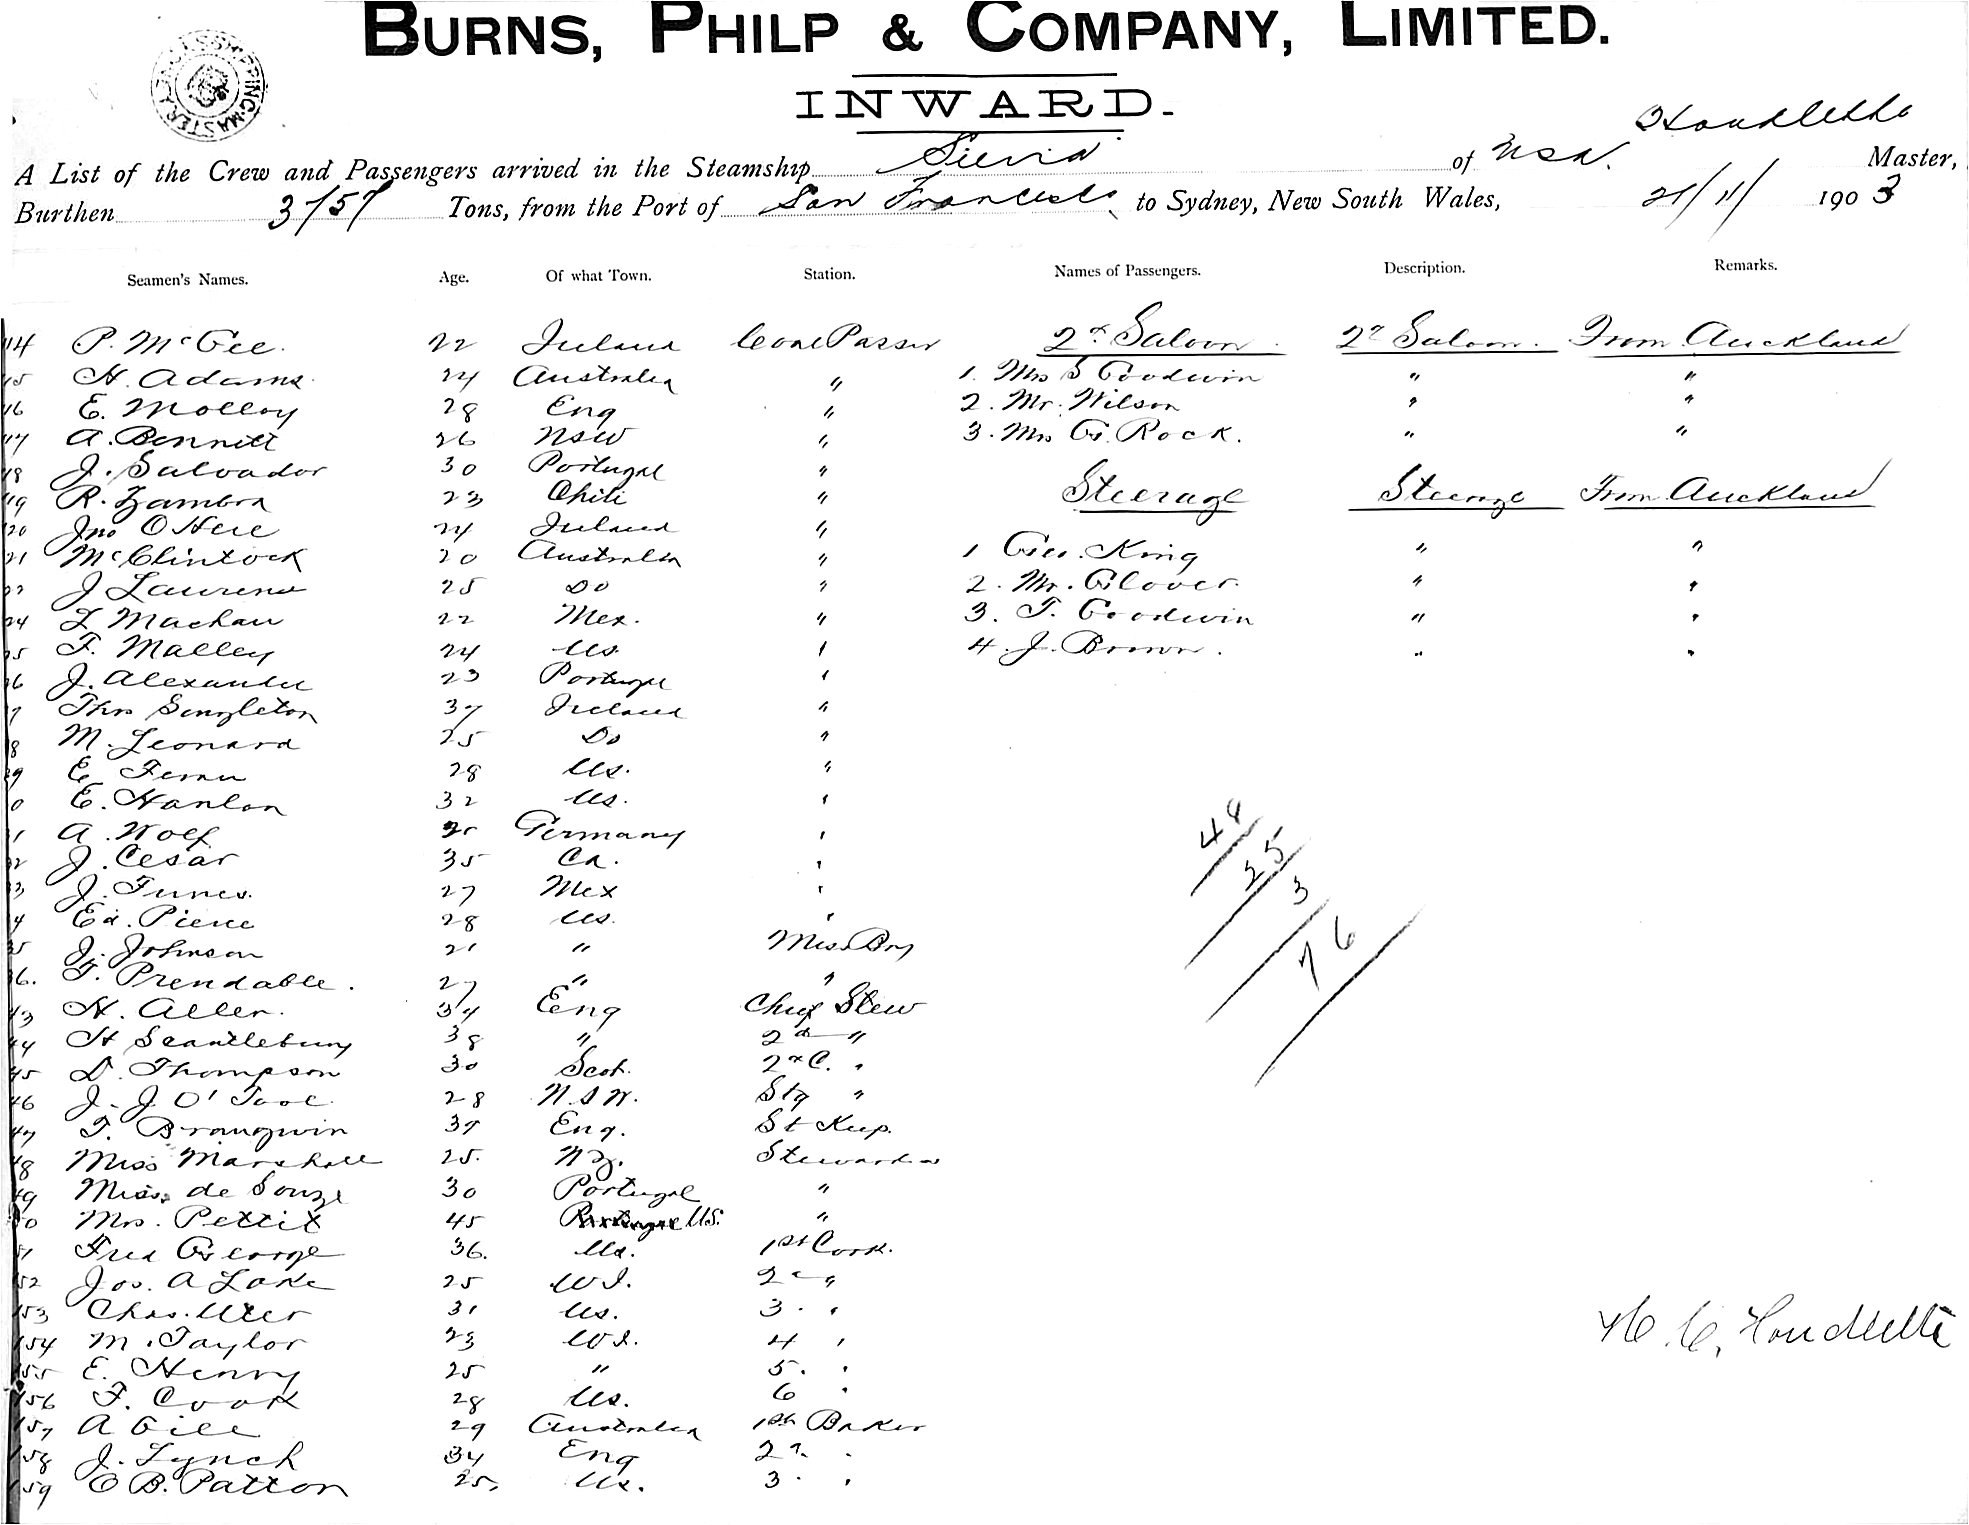 BURNS, PHILP & COMPANY, LIMITED.
INWARD.
SHIPPING MASTER
A List of the Crew and Passengers arrived in the Steamship of USA. Master,
Burthen Tons, from the Port of San Francisco to Sydney, New South Wales, 21/11/ 1903
Seamen's Names. Age. Of what Town. Station. Names of Passengers. Description. Remarks.
14 P. McGee. 22 Ireland Coal Passer 2d Saloon. 2d Saloon. From Auckland
15 H. Adams. 24 Australia " 1. Mrs S Goodwin " "
16 E. Molloy 28 Eng " 2. Mr. Wilson " "
17 A. Bennett 26 NSW " 3. Mrs G. Rock. " "
18 J. Salvador 30 Portugal "
19 R. Zambra 23 Chili " Steerage Steerage From Auckland
20 Jno O'Here 24 Ireland "
21 McClintock 20 Australia " 1 Geo. King " "
22 J Laurence 25 Do " 2. Mr. Glover. " "
24 Z Machau 22 Mex. " 3. T. Goodwin " "
25 F. Malley 24 US " 4. J. Brown. " "
26 J. Alexander 23 Portugal "
7 Thos Singleton 37 Ireland "
8 M. Leonard 25 Do "
29 E 28 US. "
0 E. Hanlon 32 US. "
31 A. Wolf Germany "
32 J. Cesar 35 Ca. "
33 J. Funes. 27 Mex "
4 Ed. Pierce 28 US. "
35 J. Johnson 21 " Mess Boy
36. T. Prendable. 27 " "
43 H. Aller. 34 Eng Chief Stew
44 H Scantlebury 38 " 2d "
45 D. Thompson 30 Scot. 2d C. "
46 J. J. O'Toole. 28 N.S.W. Stg "
47 T. Brangwin 37 Eng. St Keep.
48 Miss Marshall 25. NZ. Stewardess
49 Miss de Souza 30 Portugal "
50 Mrs. Pettit 45 Portugal US. "
51 Fred George 36. US. 1st Cook.
52 Jos. A Lake 25 W I. 2d "
153 Chas. Uter 31 US. 3. "
154 M. Taylor 23 W I. 4 "
155 E. Henry 25 " 5. "
156 F. Cook 28 US. 6 "
157 A Gill 29 Australia 1st Baker
158 J. Lynch 34 Eng 2d. "
159 C B. Patton 25, US. 3. "
48
25
3
76
H. C. Houdlette